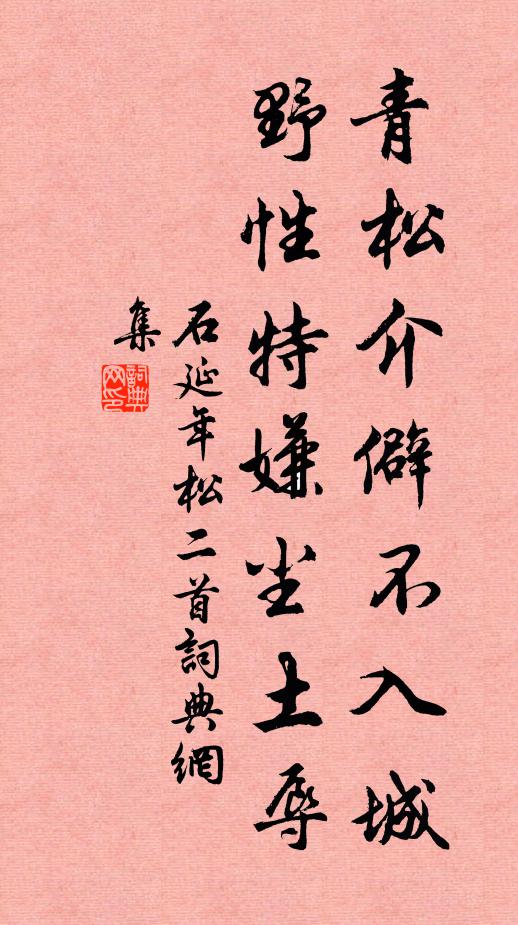 青松介僻不入城
野性特嫌尘土辱
石延年松二首詞典網
集
詞典
网印